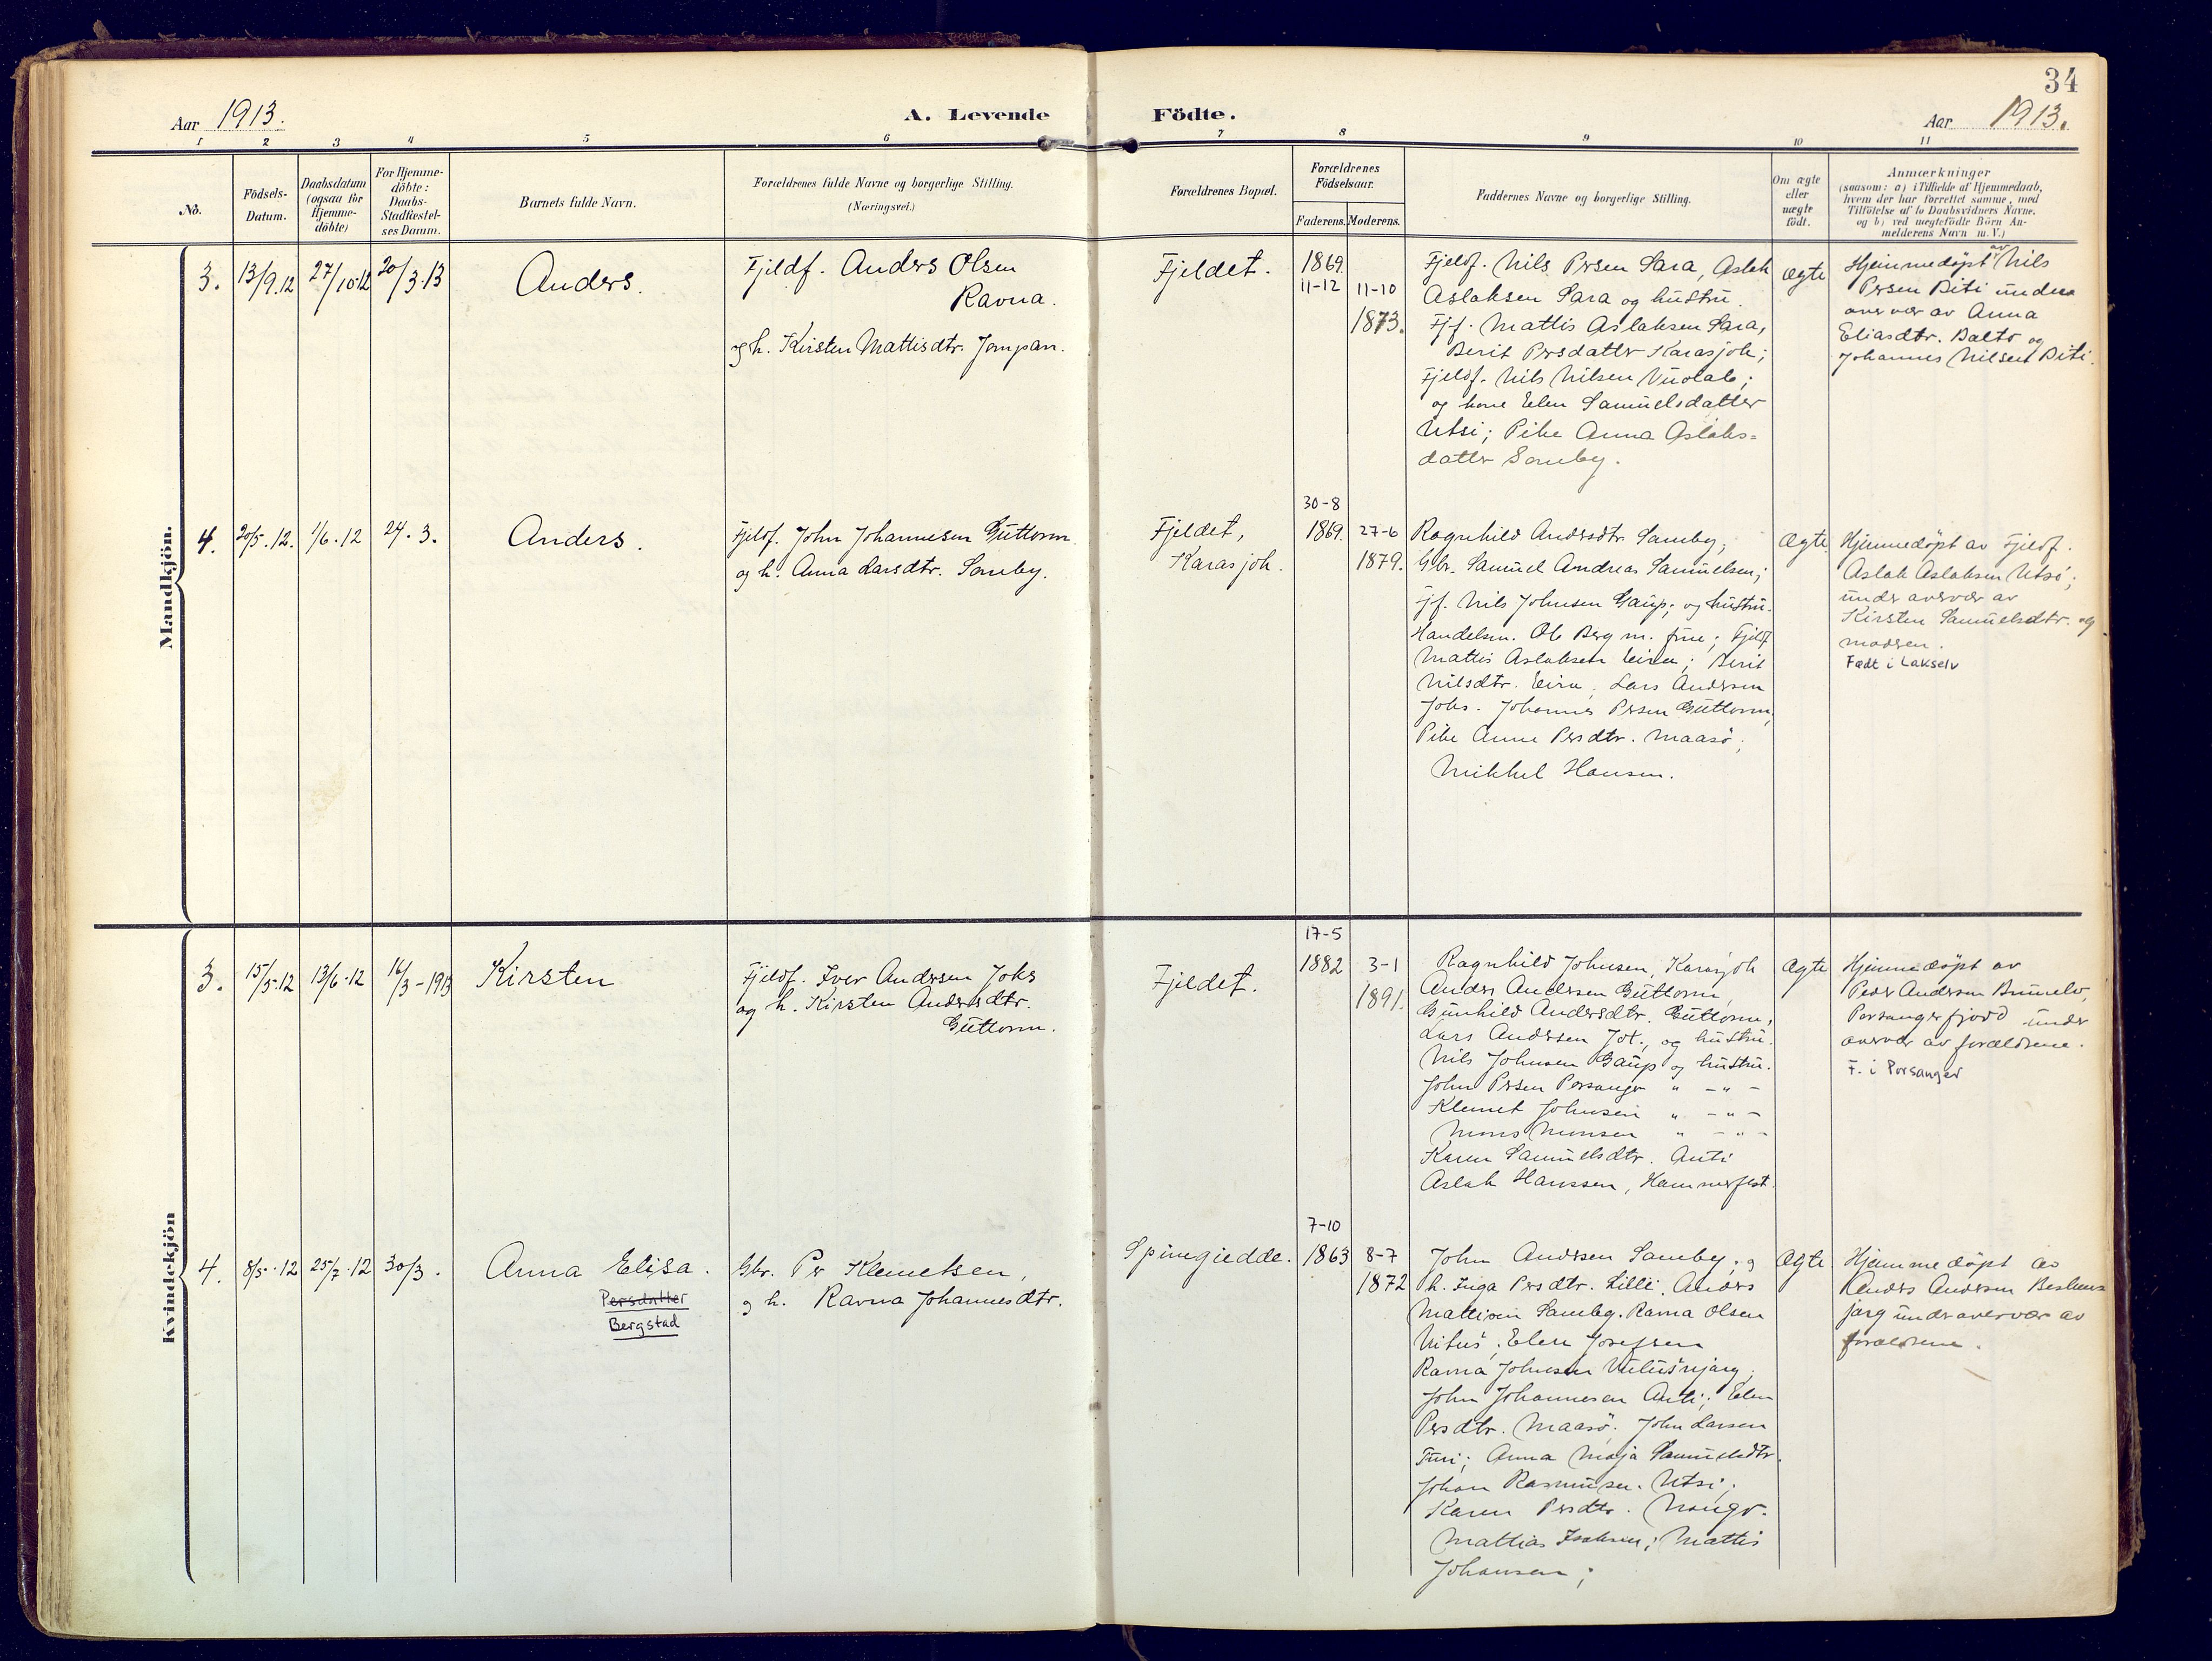 34
Aar 1913.
A. Levende Födte.
Aar 1913.
1 2 3 4 5 6 7 8 9 10 11
No.
Födsels-
Datum.
Daabsdatum
(ogsaa for
Hjemme-
döbte)
For Hjemme-
döbte:
Daabs-
Stadfæstel-
ses Datum.
Barnets fulde Navn.
Forældrenes fulde Navne og borgerlige Stilling.
(Næringsvei.)
Forældrenes Bopæl.
Forældrenes
Födselsaar.
Faderens. Moderens.
Faddernes Navne og borgerlige Stilling.
Om ægte
eller
uægte
födt.
Anmærkninger
(saasom: a) i Tilfælde af Hjemmedaab,
hvem der har forrettet samme, med
Tilföielse af to Daabsvidners Navne.
og b) ved uægtefödte Börn An-
melderens Navn m. V.)
Mandkjön.
3.
13/9.12
27/10.12
20/3.13
Anders.
Fjeldf. Anders Olsen
Ravna.
og h. Kirsten Mattisdtr. Jompan.
Fjeldet.
1869.
11-12
11-10
1873.
Fjeldf. Nils Persen Sara, Aslak
Aslaksen Sara og hustru.
Fjf. Mattis Aslaksen Sara,
Berit Persdatter Karasjok;
Fjeldf. Nils Nilsen Vuolab;
og kone Elen Samuelsdatter
Utsi; Pike Anna Aslaks=
datter Somby.
ægte
Hjemmedøpt av Nils
Persen Biti under
overvær av Anna
Eliasdtr. Balto og
Johannes Nilsen Biti.
4.
20/5.12.
1/6.12
24.3.
Anders.
Fjeldf. John Johannesen Guttorm
og h. Anna Larsdtr. Somby.
Fjeldet,
Karasjok.
30-8
1869.
27-6
1879.
Ragnhild Andersdtr. Somby;
Gbr. Samuel Andreas Samuelsen;
Fjf. Nils Johnsen Gaup; og hustru.
Handelsm. Ole Berg m. frue; Fjeldf
Mattis Aslaksen Eira; Berit
Nilsdtr. Eira; Lars Andersen
Joks. Johannes Persen Guttorm,
Pike Anne Persdtr. Maasö;
Mikkel Hansen.
Ægte
Hjemmedøpt av Fjeldf.
Aslak Aslaksen Utsi;
under overvær av
Kirsten Samuelsdtr. og
moderen.
Født i Lakselv
Kvindekjön
3.
15/5.12
13/6.12
16/3-1913
Kirsten
Fjeldf. Iver Andersen Joks
og h. Kirsten Andersdtr.
Guttorm.
Fjeldet.
17-5
1882
3-1
1891.
Ragnhild Johnsen, Karasjok
Anders Andersen Guttorm,
Gunhild Andersdtr. Guttorm,
Lars Andersen Jok., og hustru.
Nils Johnsen Gaup og hustru.
John Persen Porsanger " - " -
Klemet Johnsen " - " -
Mons Monsen " - " -
Karen Samuelsdtr. Anti
Aslak Hanssen, Hammerfest.
Ægte
Hjemmedøpt av
Peder Andersen Brunelv,
Porsangerfjord under
overvær av forældrene.
F. i Porsanger
4.
8/5.12
25/7.12
30/3.
Anna Elisa.
Persdatter
Bergstad
Gbr. Per Klemetsen,
og h. Ravna Johannesdtr.
7-10
1863
8-7
1872
John Andersen Somby; og
h. Inga Persdtr. Lilli. Anders
Mattisen Somby. Ravna Olsen
Elen Josefsen
Ravna Johnsen
John Johannesen Anti; Elen
Persdtr. Maasö; John Larsen
Turi; Anna Maja Samuelsdtr.
Johan Rasmusen. Utsi;
Karen Persdtr.
Mattias Isaksen; Mattis
Johansen;
Ægte
Hjemmedøpt av
Anders Andersen
jarg under overvær av
forældrene.